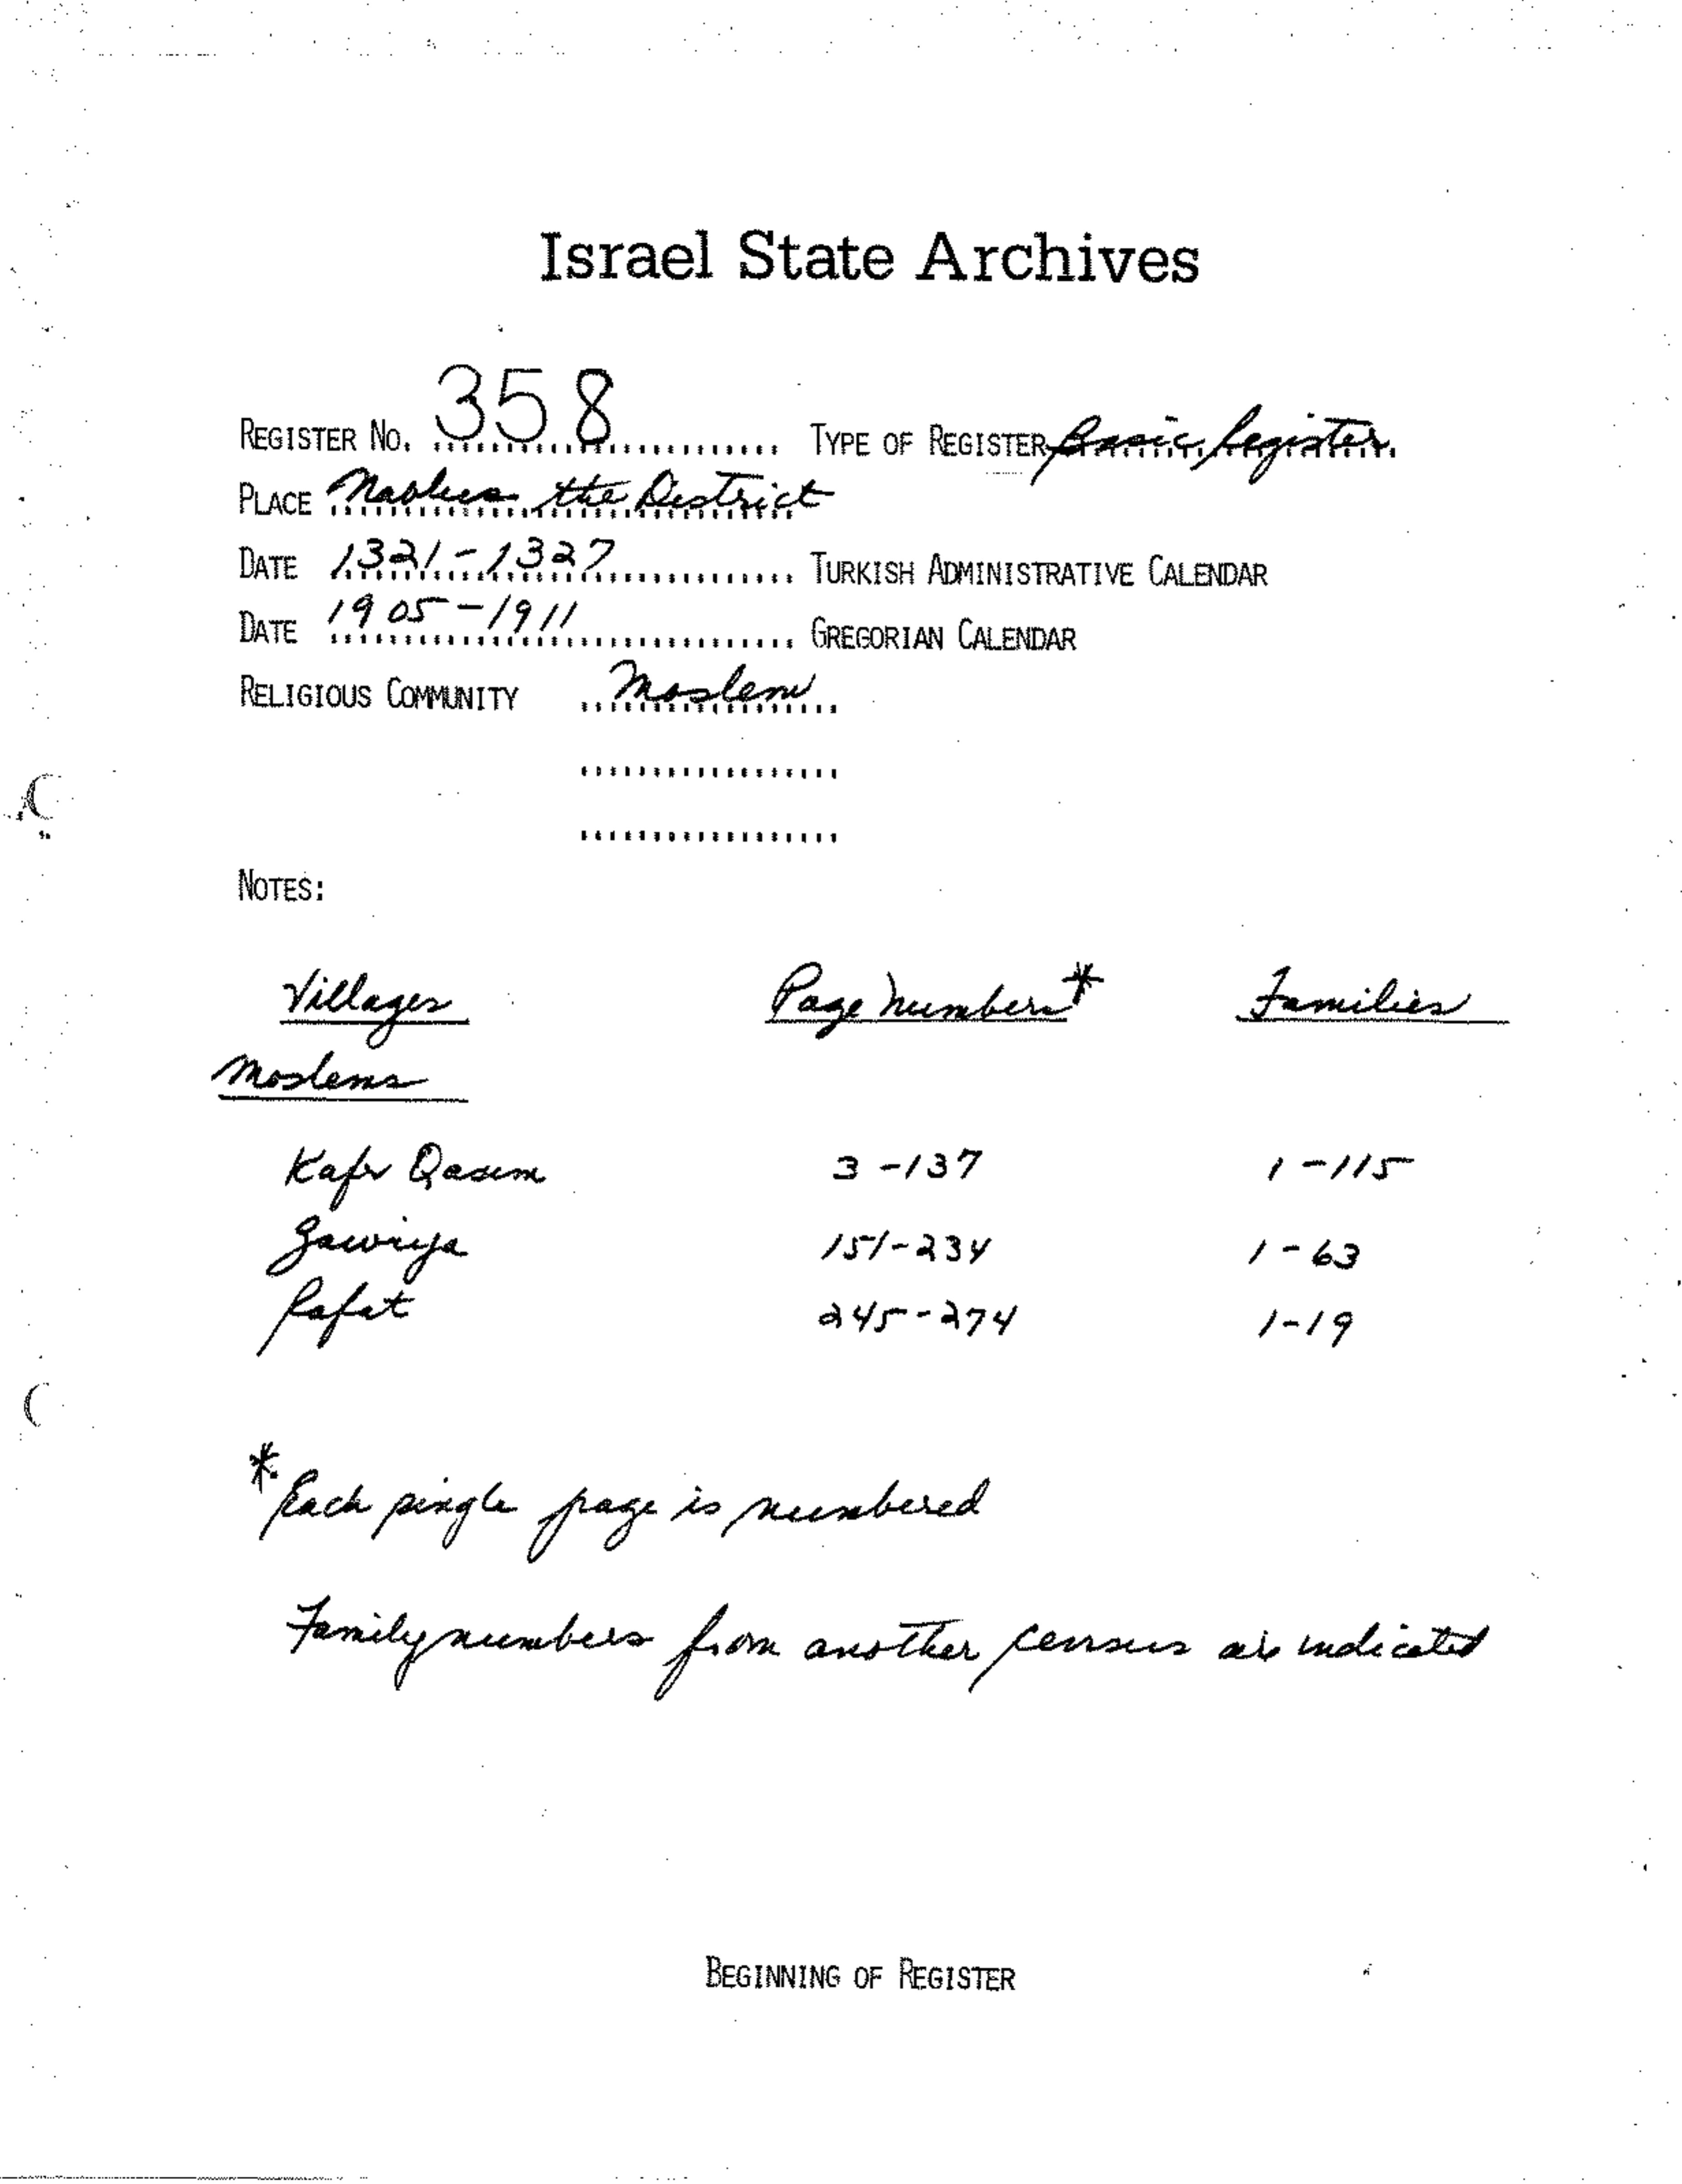 Israel State Archives
REGISTER NO. 358 TYPE OF REGISTER Basic Register
PLACE Nablus the District
DATE 1321-1327 TURKISH ADMINISTRATIVE CALENDAR
DATE 1905-1911 GREGORIAN CALENDAR
RELIGIOUS COMMUNITY Moslem
NOTES:
Villages Page Numbers* Families
Moslems
Kafr Qasem 3-137 1-115
Zawiya 151-234 1-63
Rafat 245-274 1-19
* Each single page is numbered
Family numbers from another census are indicated
BEGINNING OF REGISTER